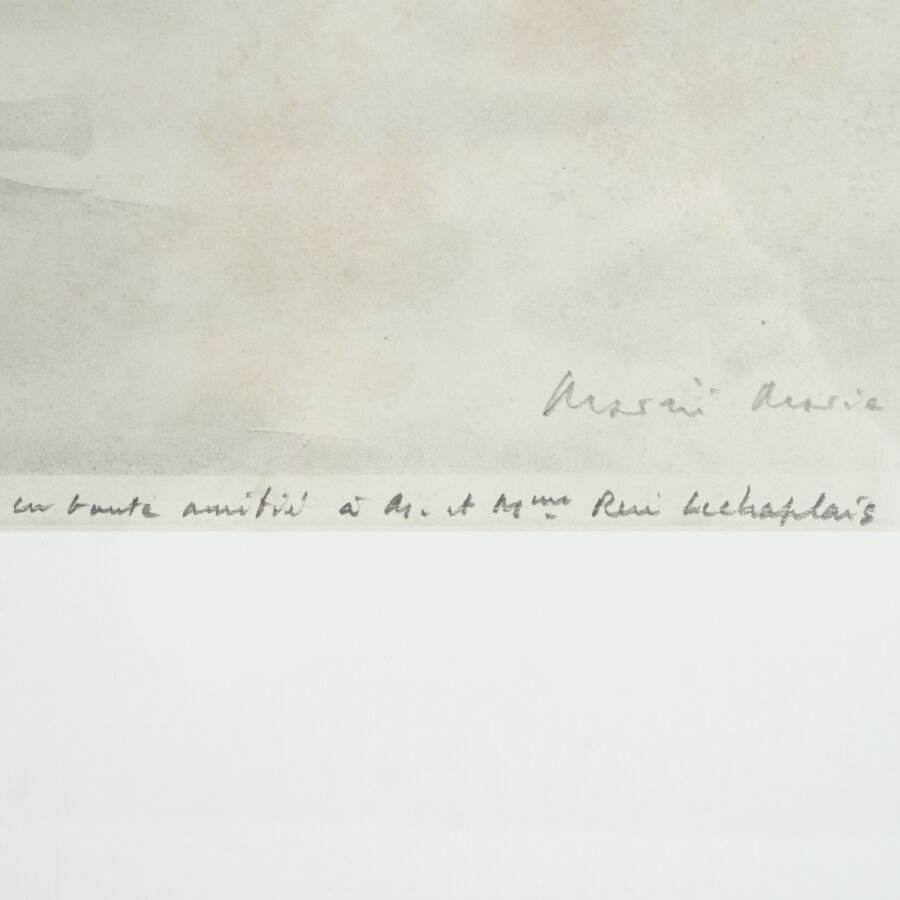 Marin Marie
en toute amitié à M. et Mme René Lechaplais